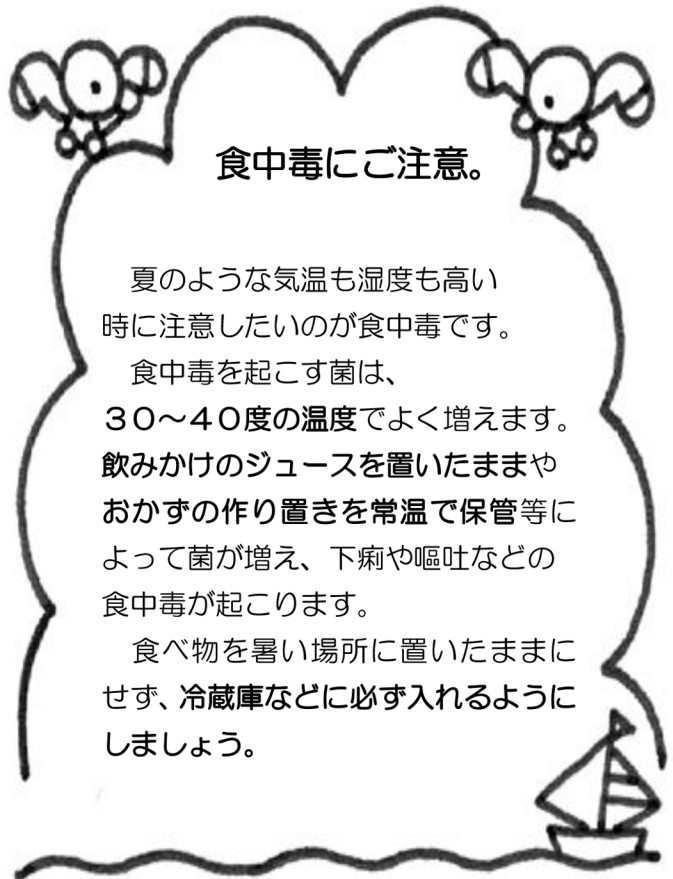 食中毒にご注意。
夏のような気温も湿度も高い
時に注意したいのが食中毒です。
食中毒を起こす菌は、
３０～４０度の温度でよく増えます。
飲みかけのジュースを置いたままや
おかずの作り置きを常温で保管等に
よって菌が増え、下痢や嘔吐などの
食中毒が起こります。
食べ物を暑い場所に置いたままに
せず、冷蔵庫などに必ず入れるように
しましょう。